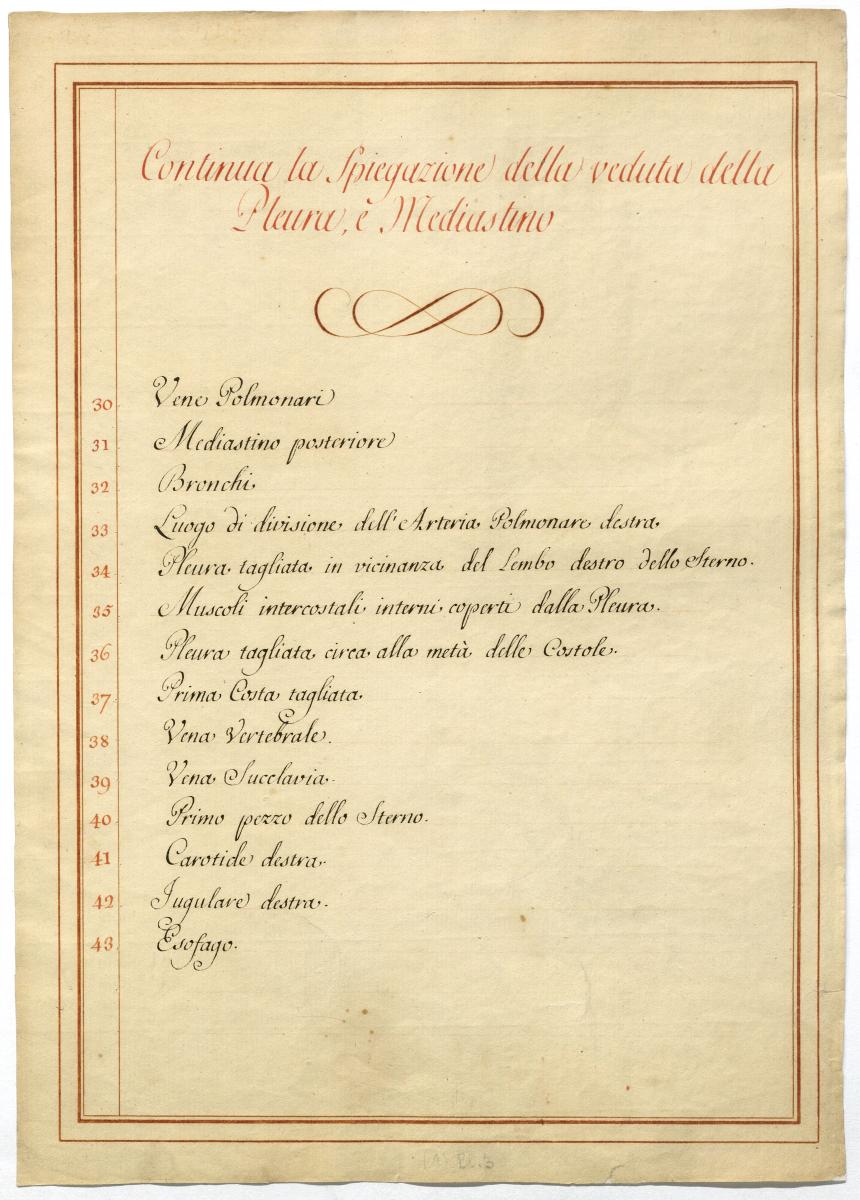 Continua la Spiegazione della veduta della
Pleura, è Mediastino
30 Vene Polmonari
31 Mediastino posteriore
32 Bronchi.
33 Luogo di divisione dell'Arteria Polmonare destra.
34 Pleura tagliata in vicinanza del Lembo destro dello Sterno.
35 Muscoli intercostali interni coperti dalla Pleura.
36 Pleura tagliata circa alla metà delle Costole.
37 Prima Costa tagliata.
38 Vena Vertebrale.
39 Vena Succlavia.
40 Primo pezzo dello Sterno.
41 Carotide destra.
42 Jugulare destra.
43 Esofago.